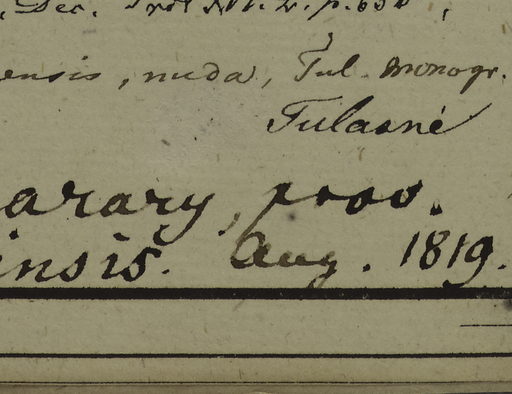 Dec. Prod. N. 2. p.
ensis, nuda, Tul. Monogr.
Tulasné
arary, prov.
insis. Aug. 1819.